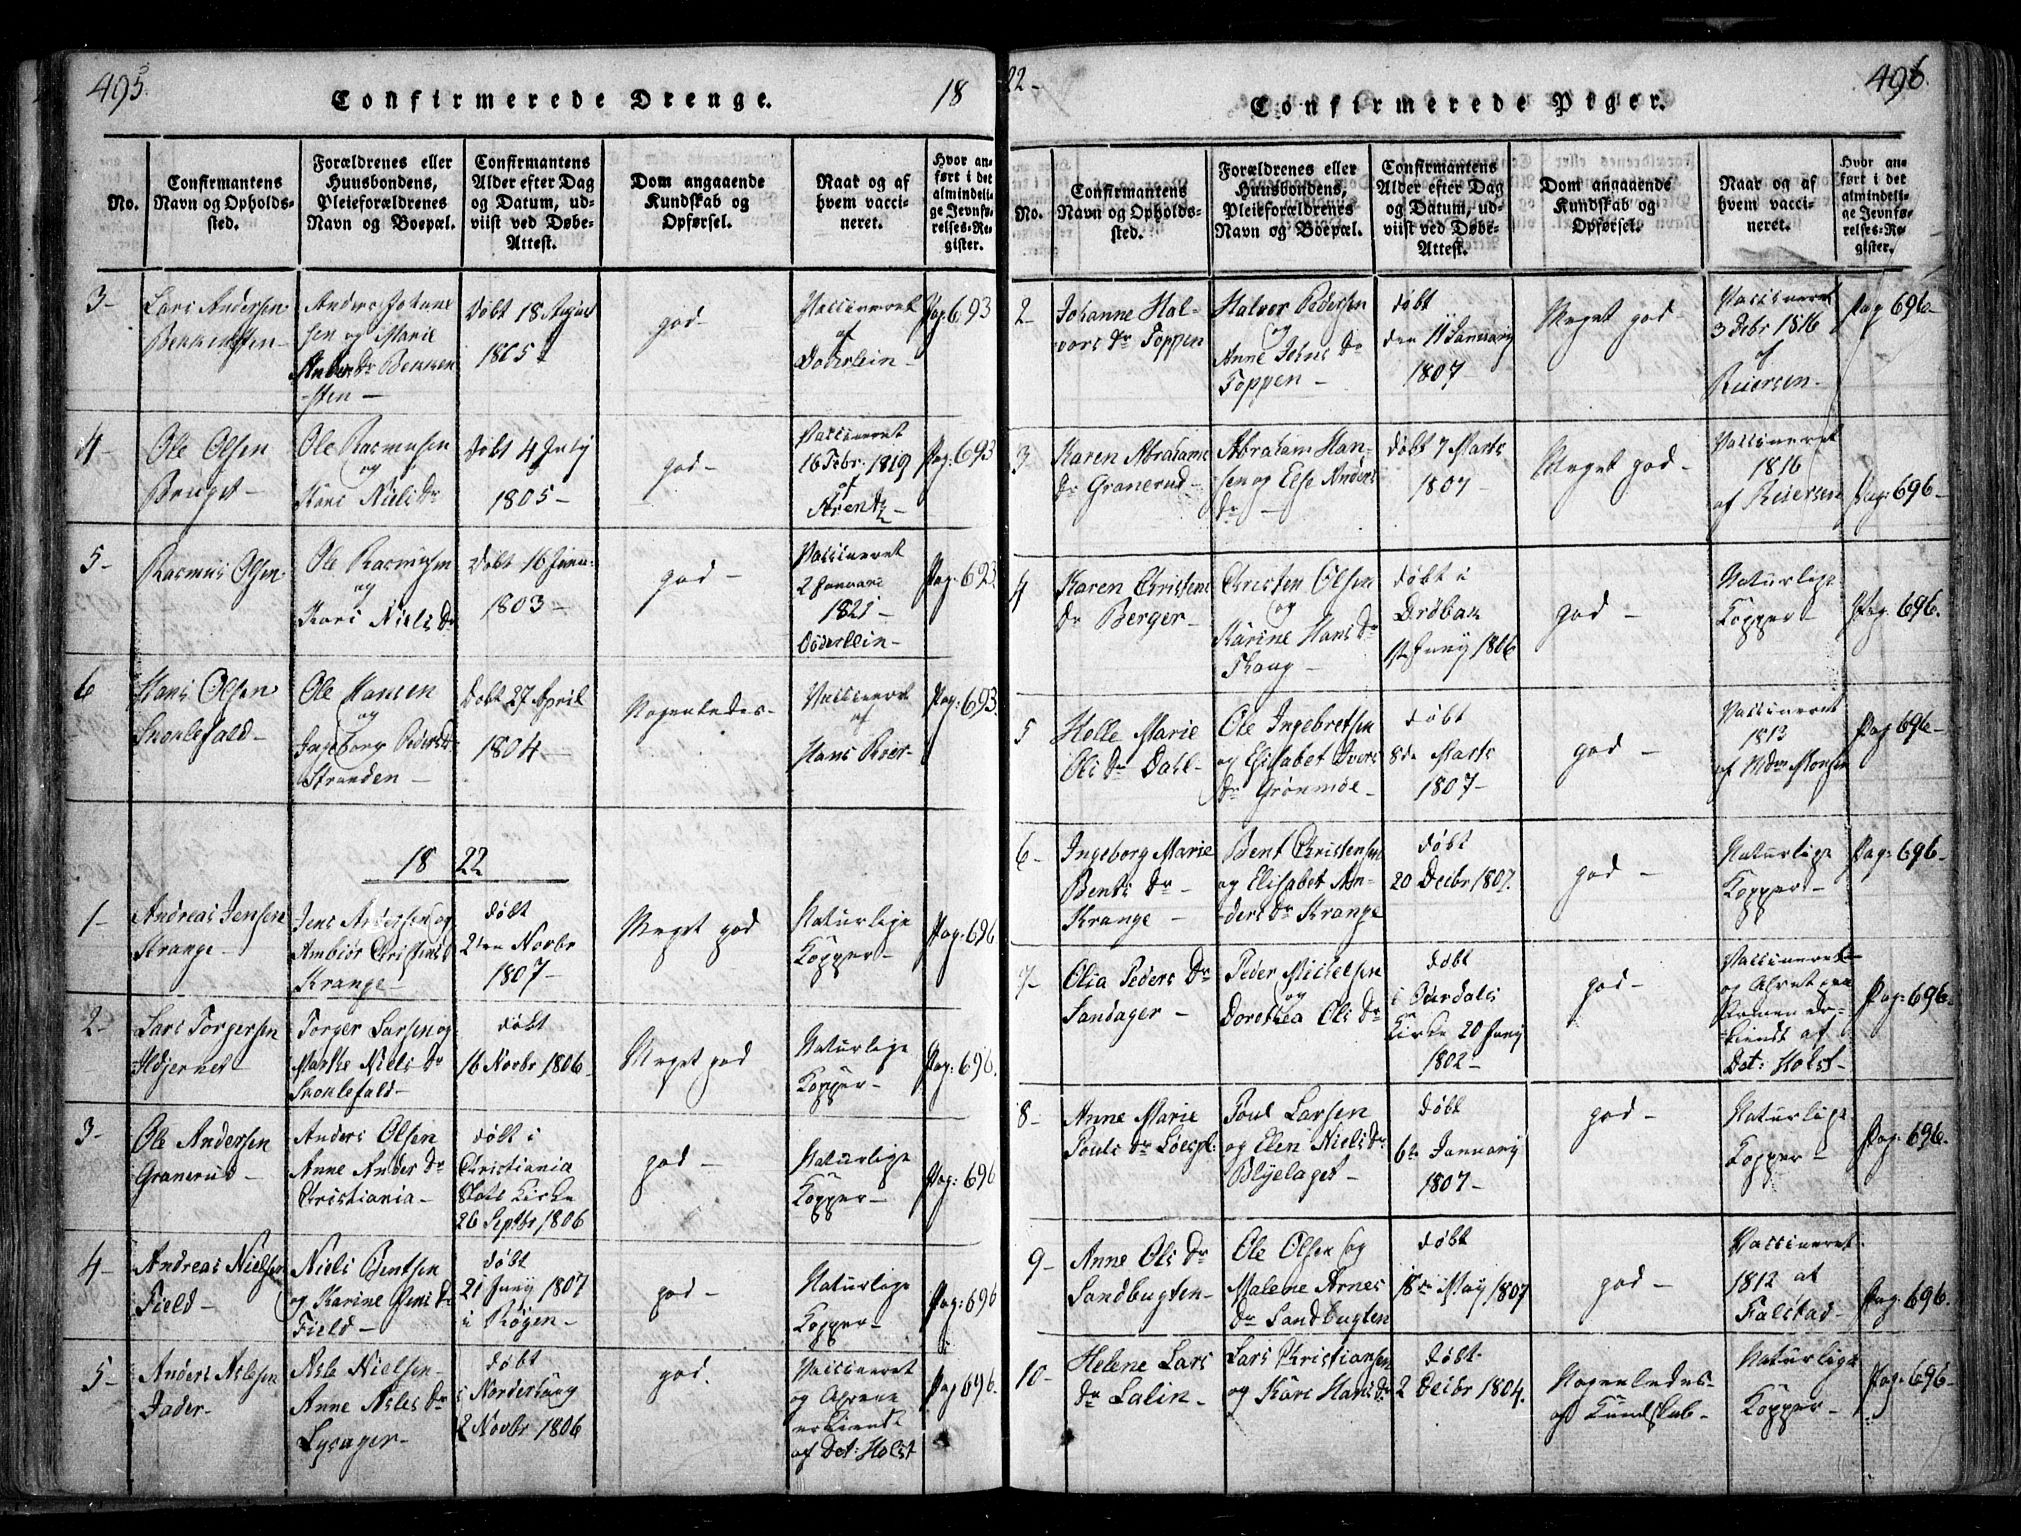 495.
Confirmerede Drenge.
18
No.
Confirmantens
Navn og Opholds-
sted.
Forældrenes eller
Huusbondens,
Pleieforældrenes
Navn og Boepæl.
Confirmantens
Alder efter Dag
og Datum, ud-
viist ved Døbe-
Attest.
Dom angaaende
Kundskab og
Opførsel.
Naar og af
hvem vacci-
neret.
Hvor an-
ført i det
almindeli-
ge Jevnfø-
relses-Re-
gister.
3-
Lars Andersen
Anders Johane
sen og Marie
Anders Dr Bekken
-sten-
Døbt 18 August
1805
god-
Vaccineret
af
Döderlein-
Pag. 693
4-
Ole Olsen
Ole Rasmusen
og
Kari Niels Dr
Døbt 4 July
1805-
god-
Vaccineret
16 Febr. 1819
af
Arentz-
Pag: 693
5-
Rasmus Olsen
Ole Rasmusen
og
Kari Niels Dr
Døbt 16 Janu-
1803-
god-
Vaccineret
2 Januari
1821
Döderlein-
Pag: 693
6
Hans Olsen
Snonlefald-
Ole Hansen
og
Ingeborg Peders Dr
Stranden-
Døbt 27 April
1804-
Nogenledes-
Vaccineret
af
Hans Bier-
Pag: 693.
18 22
1-
Andreas Jensen
Krange-
Jens Andersen og
Ambiör Christens D
Krange-
døbt
21en Novbr
1807-
Meget god
Naturlige
Kopper-
Pag: 696
2-
Lars Torgersen
Ildjernet
Torger Larsen og
Marthe Niels Dr
Snonlefald-
døbt
16 Novbr 1806-
Meget god
Naturlige
Kopper-
Pag: 696.
3-
Ole Andersen
Granerud-
Anders Olsen
Anne Anders Dr
Christiania-
døbt i
Christiania
Slots Kirke
26 Septbr 1806
god-
Naturlige
Kopper-
Pag: 696
4-
Andreas Nielsen
Field-
Niels Bentsen
og Karine Jens Dr
Field-
døbt
21 Juny 1807
i Røgen-
god-
Naturlige
Kopper-
Pag: 696
5-
Anders Aslesen
Jader-
Asle Nielsen-
Anne Asles Dr
Lysager-
døbt
i Norderhoug
2 Novbr 1806
god.
Vaccineret
og Arene
erkiendt
af Dot: Holst
Pag 696.
22-
Confirmerede Piger.
496.
No.
Confirmantens
Navn og Opholds-
sted.
Forældrenes eller
Huusbondens,
Pleieforældrenes
Navn og Boepæl.
Confirmantens
Alder efter Dag
og Datum, ud-
viist ved Døbe-
Attest.
Dom angaaende
Kundskab og
Opførsel.
Naar og af
hvem vacci-
neret.
Hvor an-
ført i det
almindeli-
ge Jevnfø-
relses-Re-
gister.
2-
Johanne Hal-
vors Dr Toppen
Halvor Pedersen
og
Anne Johns Dr
Toppen-
døbt
den 11 January
1807
Meget god-
Vaccineret
3 Febr 1816
af
Reiersen-
Pag 696-
3
Karen Abrahams
Dr Granerud-
Abraham Han-
sen og Else Anders
Dr-
døbt 7 Marts
1807-
Meget god-
Vaccineret
1816
af Reiersen
Pag: 696-
4
Karen Christens
Dr Berger-
Christen Olsen
og
Karine Hans Dr
Skaug-
døbt i
Drøbak
1ste Juny 1806
god-
Naturlige
Kopper-
Pag. 696.
5
Helle Marie
Ols Dr Dahl-
Ole Ingebretsen
og Elisabet Ivers
Dr Grønmøe-
døbt
8de Marts
1807-
god-
Vaccineret
1813
af Mdm Monsen
Pag 696-
6-
Ingeborg Marie
Bents Dr-
Krange-
Bent Christensen
og Elisabet An-
ders Dr Krange
døbt
20 Decbr 1807.
god-
Naturlige
Kopper-
Pag: 696-
7-
Olia Peders Dr
Sandager-
Peder Michelsen
og
Dorothea Ols Dr
døbt
i Ourdals
Kirke 20 Juny
1802-
god-
Vaccineret
kiendt af
Dot: Holst-
Pag: 696-
8-
Anne Marie
Pouls Dr
Poul Larsen
og Elen Niels Dr
Blylaget-
døbt
6te January
1807-
god-
Naturlige
Kopper-
Pag: 696.
9-
Anne Ols Dr
Sandbugten-
Ole Olsen og
Malene Arnes
Dr Sandbugten
døbt
18de May 1807
god-
Vaccineret
1812 af
Falstad-
Pag: 696.
10-
Helene Lars
Dr Lalin-
Lars Christiansen
og Kari Hans Dr
døbt
2 Decbr 1804.
Nogenledes-
af Kundskab-
Naturlige
Kopper-
Pag: 696-